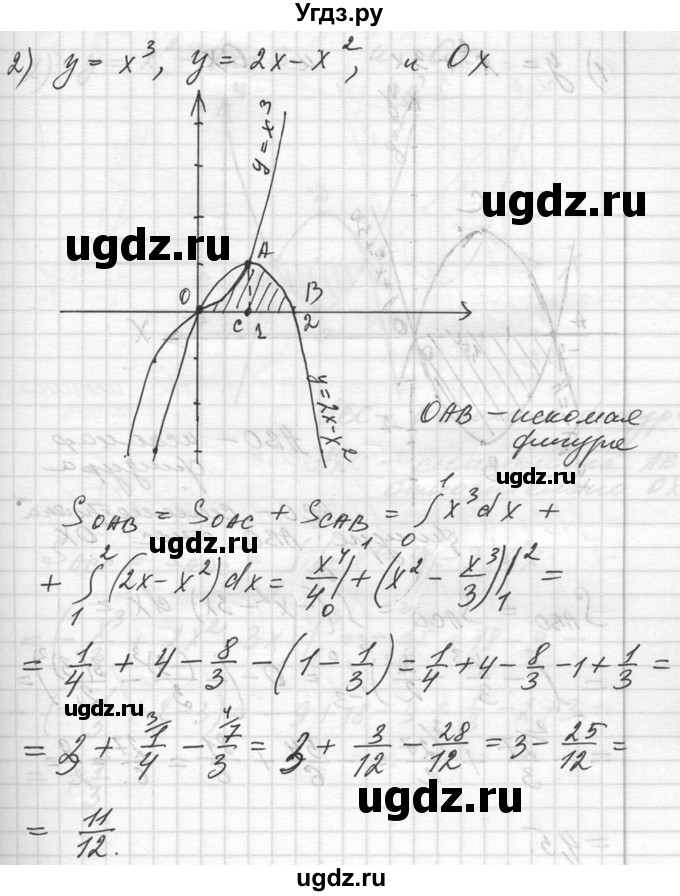 Угдз.ру
2) y = x³, y = 2x - x², и Ox
y = x³
ugdz.ru
ugdz.ru
A
O
B
C
1
2
y = 2x - x²
OAB - искомая
фигура
S_OAB = S_OAC + S_CAB = ∫₀¹ x³dx +
ugdz.ru
+ ∫₁² (2x - x²)dx = x⁴/4 |₀¹ + (x² - x³/3)|₁² =
= 1/4 + 4 - 8/3 - (1 - 1/3) = 1/4 + 4 - 8/3 - 1 + 1/3 =
ugdz.ru
= 3 + ³⁄1/4 - ⁴⁄7/3 = 3 + 3/12 - 28/12 = 3 - 25/12 =
ugdz.ru
= 11/12.
ugdz.ru